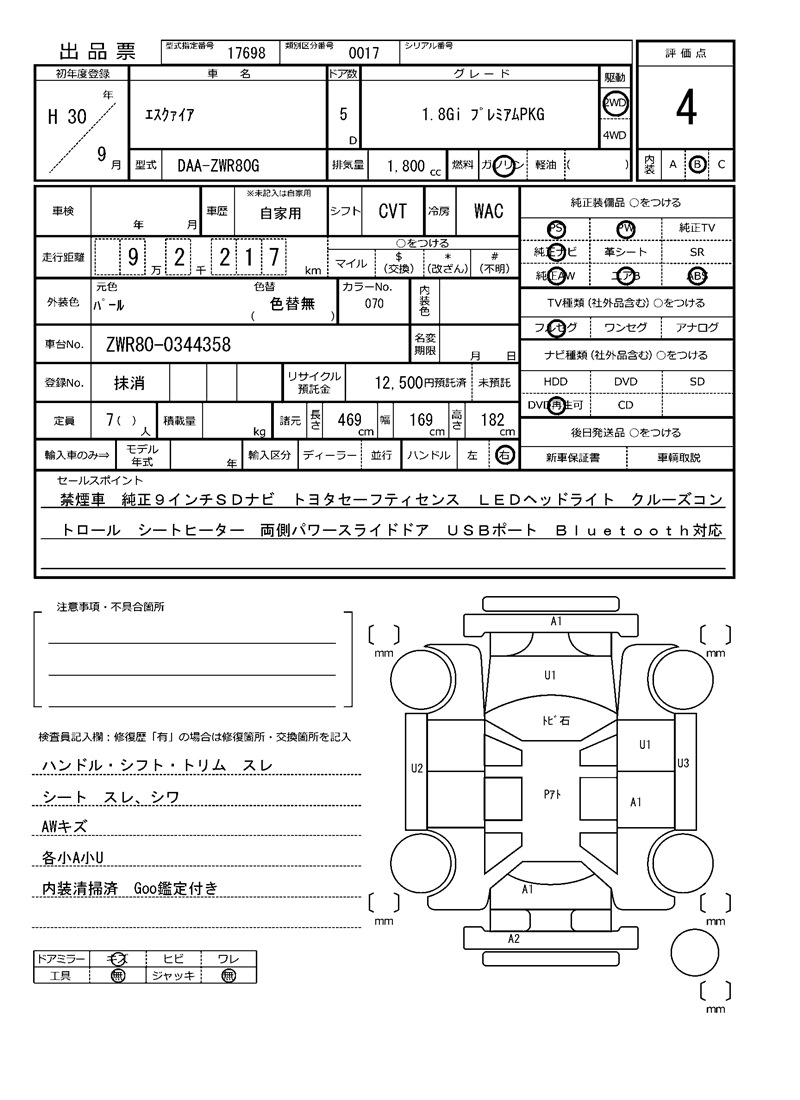 出品票
型式指定番号 17698 類別区分番号 0017 シリアル番号
評価点
4
内装 A B C
初年度登録 車名 ドア数 グレード 駆動
H 30 年 9 月
エスクァイア 5 D 1.8Gi プレミアムPKG 2WD 4WD
型式 DAA-ZWR80G 排気量 1,800 cc 燃料 ガソリン 軽油 ( )
車検 年 月 車歴 ※未記入は自家用 自家用 シフト CVT 冷房 WAC
走行距離 9 万 2 千 2 1 7 km
○をつける
マイル $ (交換) * (改ざん) # (不明)
外装色 元色 パール 色替 色替無 ( ) カラーNo. 070 内装色
車台No. ZWR80-0344358 名変期限 月 日
登録No. 抹消 リサイクル預託金 12,500円預託済 未預託
定員 7 ( ) 人 積載量 kg 諸元 長さ 469 cm 幅 169 cm 高さ 182 cm
輸入車のみ⇒ モデル年式 年 輸入区分 ディーラー 並行 ハンドル 左 右
純正装備品 ○をつける
PS PW 純正TV
純正ナビ 革シート SR
純正AW エアB ABS
TV種類(社外品含む)○をつける
フルセグ ワンセグ アナログ
ナビ種類(社外品含む)○をつける
HDD DVD SD
DVD再生可 CD
後日発送品 ○をつける
新車保証書 車輌取説
セールスポイント
禁煙車 純正9インチSDナビ トヨタセーフティセンス LEDヘッドライト クルーズコン
トロール シートヒーター 両側パワースライドドア USBポート Bluetooth対応
注意事項・不具合箇所
検査員記入欄:修復歴「有」の場合は修復箇所・交換箇所を記入
ハンドル・シフト・トリム スレ
シート スレ、シワ
AWキズ
各小A小U
内装清掃済 Goo鑑定付き
ドアミラー キズ ヒビ ワレ
工具 無 ジャッキ 無
A1
mm mm
U1
トビ石
U2 U1 U3
Pアト A1
A1
mm mm
A2
mm